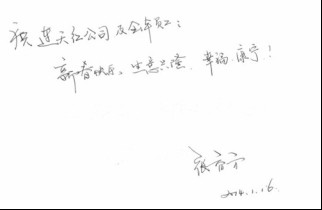 祝莲天红公司及全体员工：
新春快乐、生意兴隆、幸福、康宁！
2014.1.16